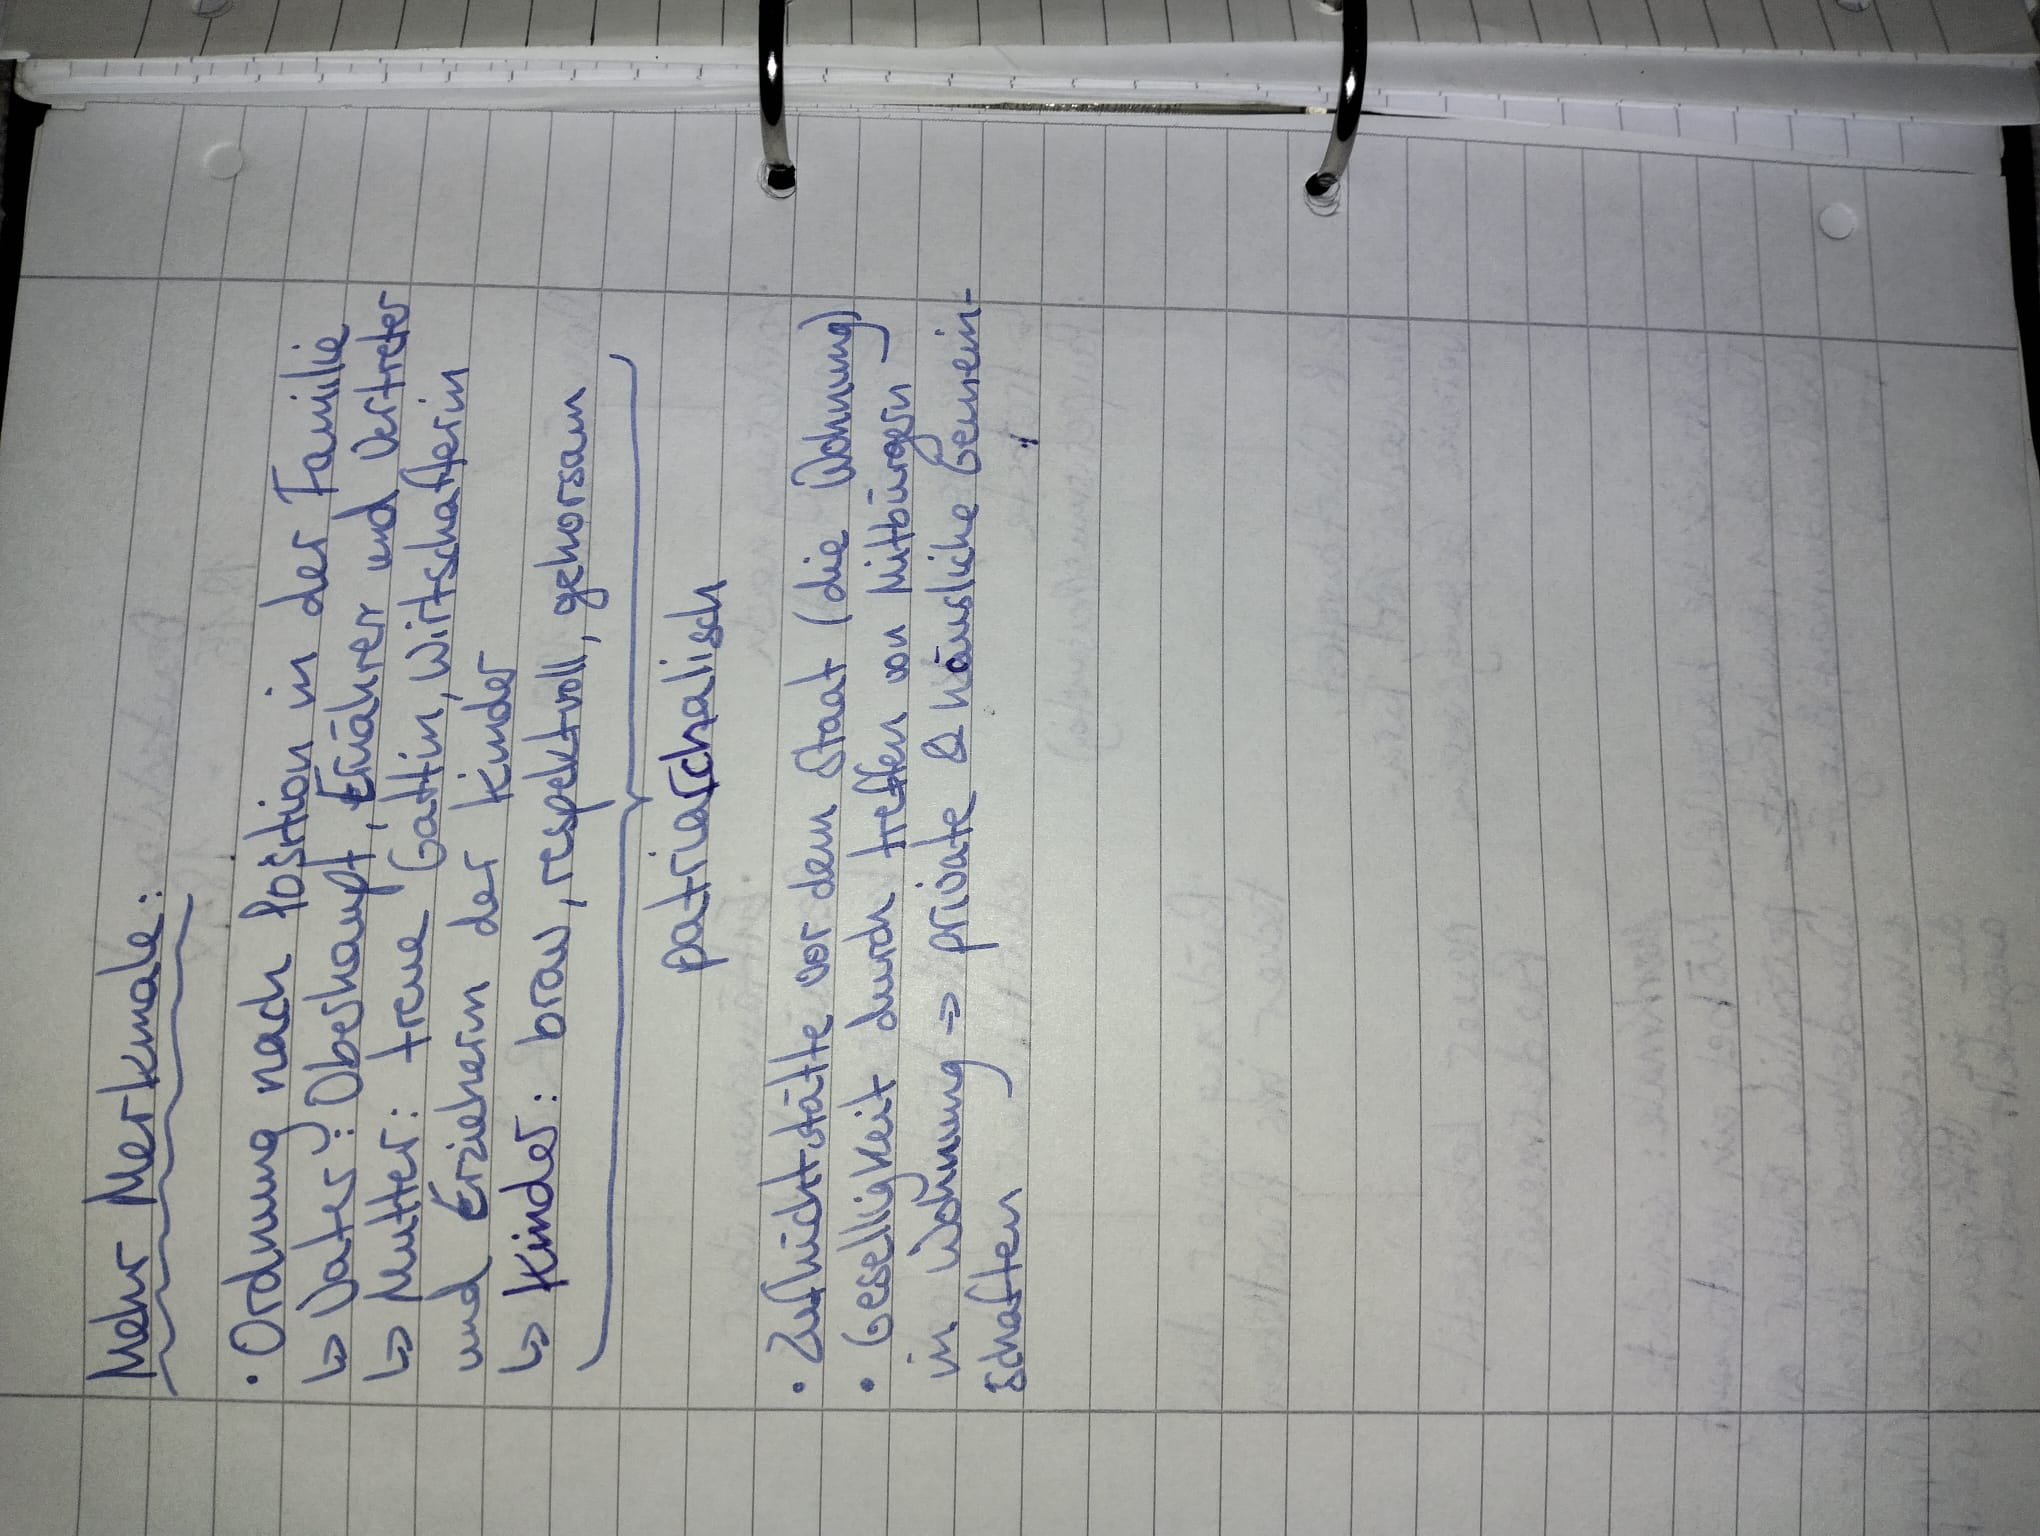 Mehr Merkmale:
• Ordnung nach Position in der Familie
↳ Vater: Oberhaupt, Ernährer und Vertreter
↳ Mutter: treue Gattin, Wirtschafterin
und Erzieherin der Kinder
↳ Kinder: brav, respektvoll, gehorsam
patriarchalisch
• Zufluchtstätte vor dem Staat (die Wohnung)
• Geselligkeit durch treffen von Mitbürgern
in Wohnung ⇒ private & häusliche Gemein-
schaften